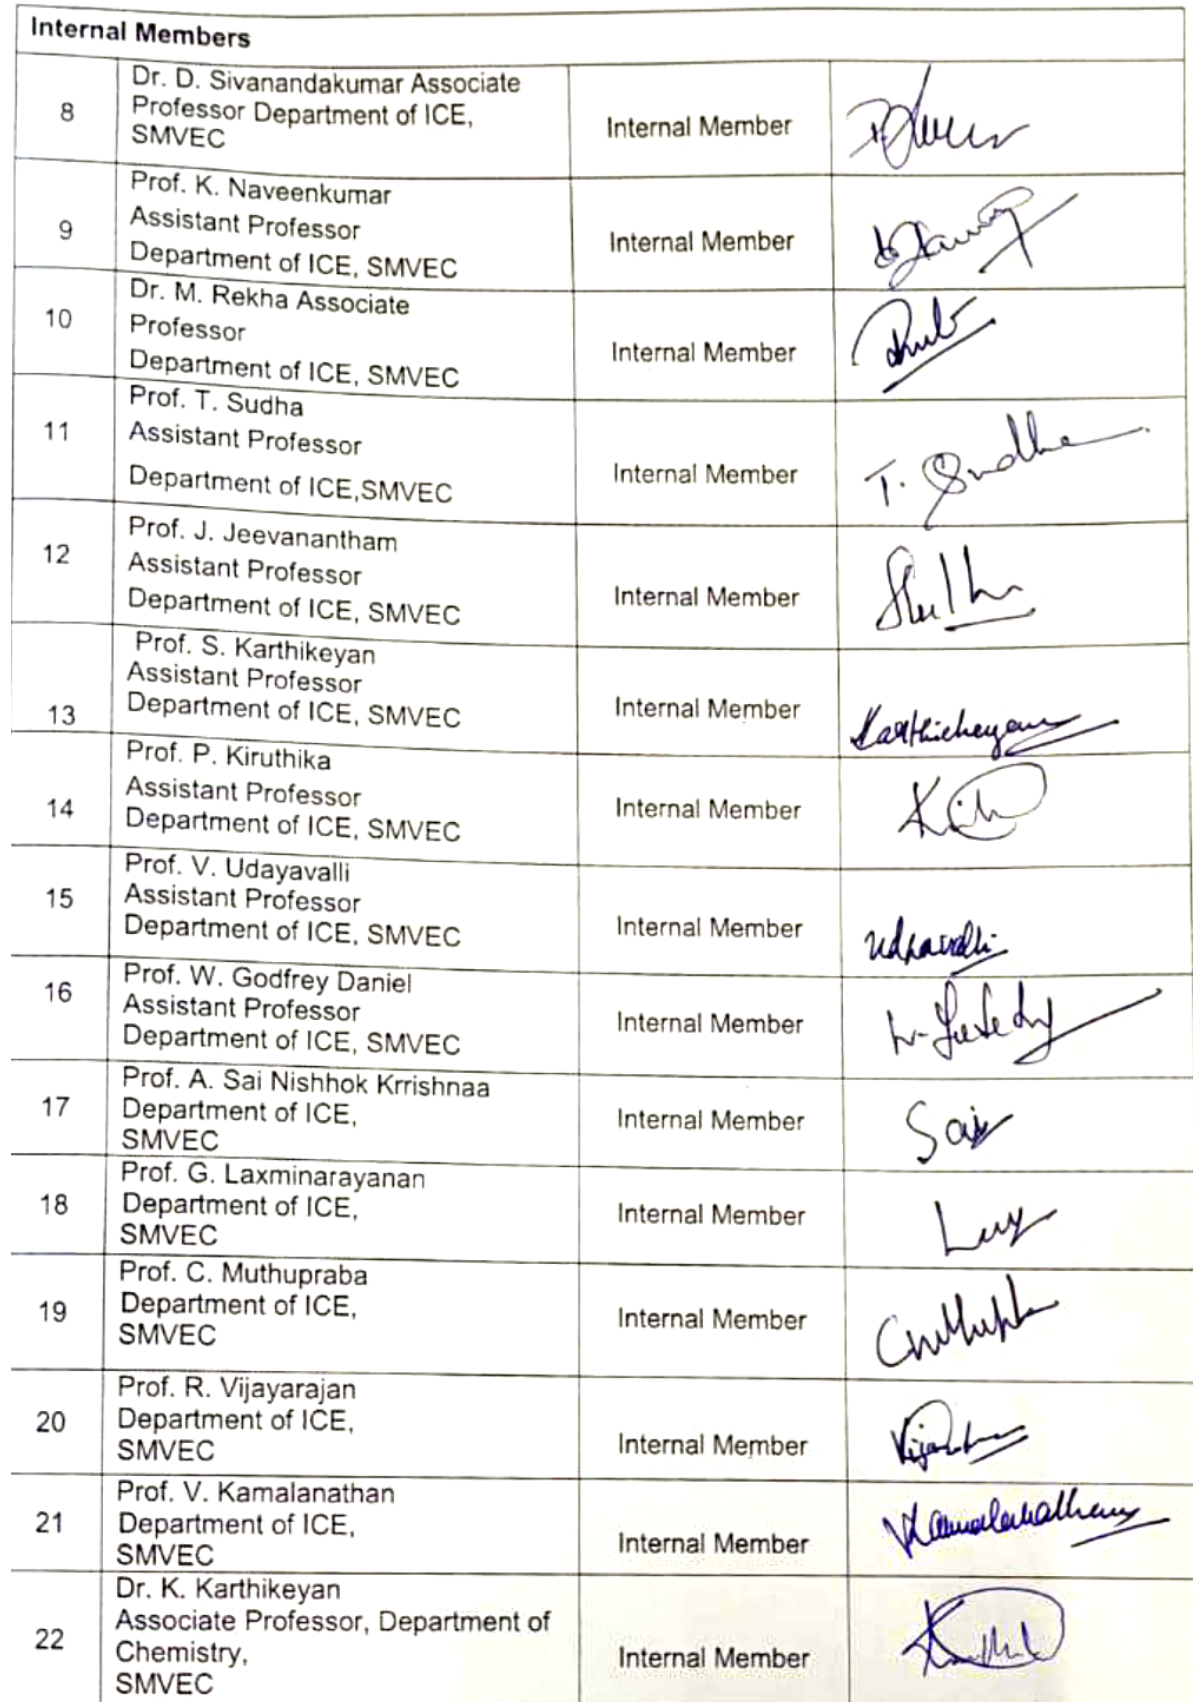 Internal Members
8
Dr. D. Sivanandakumar Associate
Professor Department of ICE,
SMVEC
Internal Member
9
Prof. K. Naveenkumar
Assistant Professor
Department of ICE, SMVEC
Internal Member
10
Dr. M. Rekha Associate
Professor
Department of ICE, SMVEC
Internal Member
11
Prof. T. Sudha
Assistant Professor
Department of ICE,SMVEC
Internal Member
T. Sudha
12
Prof. J. Jeevanantham
Assistant Professor
Department of ICE, SMVEC
Internal Member
13
Prof. S. Karthikeyan
Assistant Professor
Department of ICE, SMVEC
Internal Member
14
Prof. P. Kiruthika
Assistant Professor
Department of ICE, SMVEC
Internal Member
15
Prof. V. Udayavalli
Assistant Professor
Department of ICE, SMVEC
Internal Member
16
Prof. W. Godfrey Daniel
Assistant Professor
Department of ICE, SMVEC
Internal Member
17
Prof. A. Sai Nishhok Krrishnaa
Department of ICE,
SMVEC
Internal Member
Sai
18
Prof. G. Laxminarayanan
Department of ICE,
SMVEC
Internal Member
19
Prof. C. Muthupraba
Department of ICE,
SMVEC
Internal Member
20
Prof. R. Vijayarajan
Department of ICE,
SMVEC
Internal Member
21
Prof. V. Kamalanathan
Department of ICE,
SMVEC
Internal Member
22
Dr. K. Karthikeyan
Associate Professor, Department of
Chemistry,
SMVEC
Internal Member